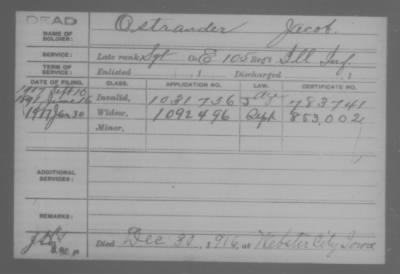 DEAD
NAME OF SOLDIER: Ostrander Jacob.
SERVICE: Late rank Sgt Co. E 105 Reg't Ill Inf.
TERM OF SERVICE: Enlisted , 1 Discharged , 1
DATE OF FILING. CLASS. APPLICATION NO. LAW. CERTIFICATE NO.
Sept 10
1891 June 16 Invalid, 1031736 783741
1917 Jan 30 Widow, 1092496 Sept 853,002
Minor,
ADDITIONAL SERVICES:
REMARKS:
Died Dec 30, 1916, at Webster City Iowa